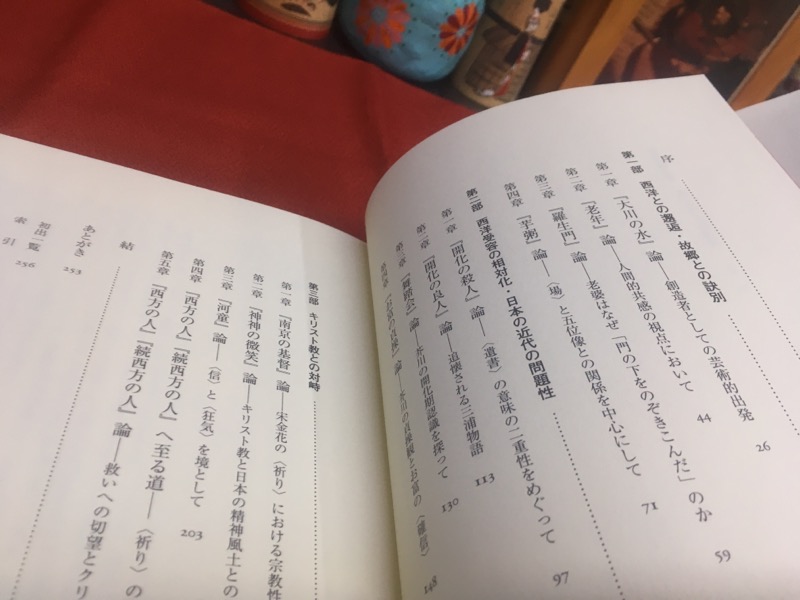 序
第一部 西洋との邂逅・故郷との訣別
第一章 『大川の水』論――創造者としての芸術的出発 26
第二章 『老年』論――人間的共感の視点において 44
第三章 『羅生門』論――老婆はなぜ「門の下をのぞきこんだ」のか 59
第四章 『芋粥』論――〈場〉と五位像との関係を中心にして 71
第二部 西洋受容の相対化・日本の近代の問題性
第一章 『開化の殺人』論――〈遺書〉の意味の二重性をめぐって 97
第二章 『開化の良人』論――追懐される三浦物語 113
第三章 『舞踏会』論――芥川の開化期認識を探って 130
第四章 『お富の貞操』論――芥川の貞操観とお富の〈確信〉 148
第三部 キリスト教との対峙
第一章 『南京の基督』論――宋金花の〈祈り〉における宗教性
第二章 『神神の微笑』論――キリスト教と日本の精神風土との
第三章 『河童』論――〈信〉と〈狂気〉を境として 203
第四章 『西方の人』『続西方の人』へ至る道――〈祈り〉の
第五章 『西方の人』『続西方の人』論――救いへの切望とクリ
結
あとがき 253
初出一覧 256
索 引